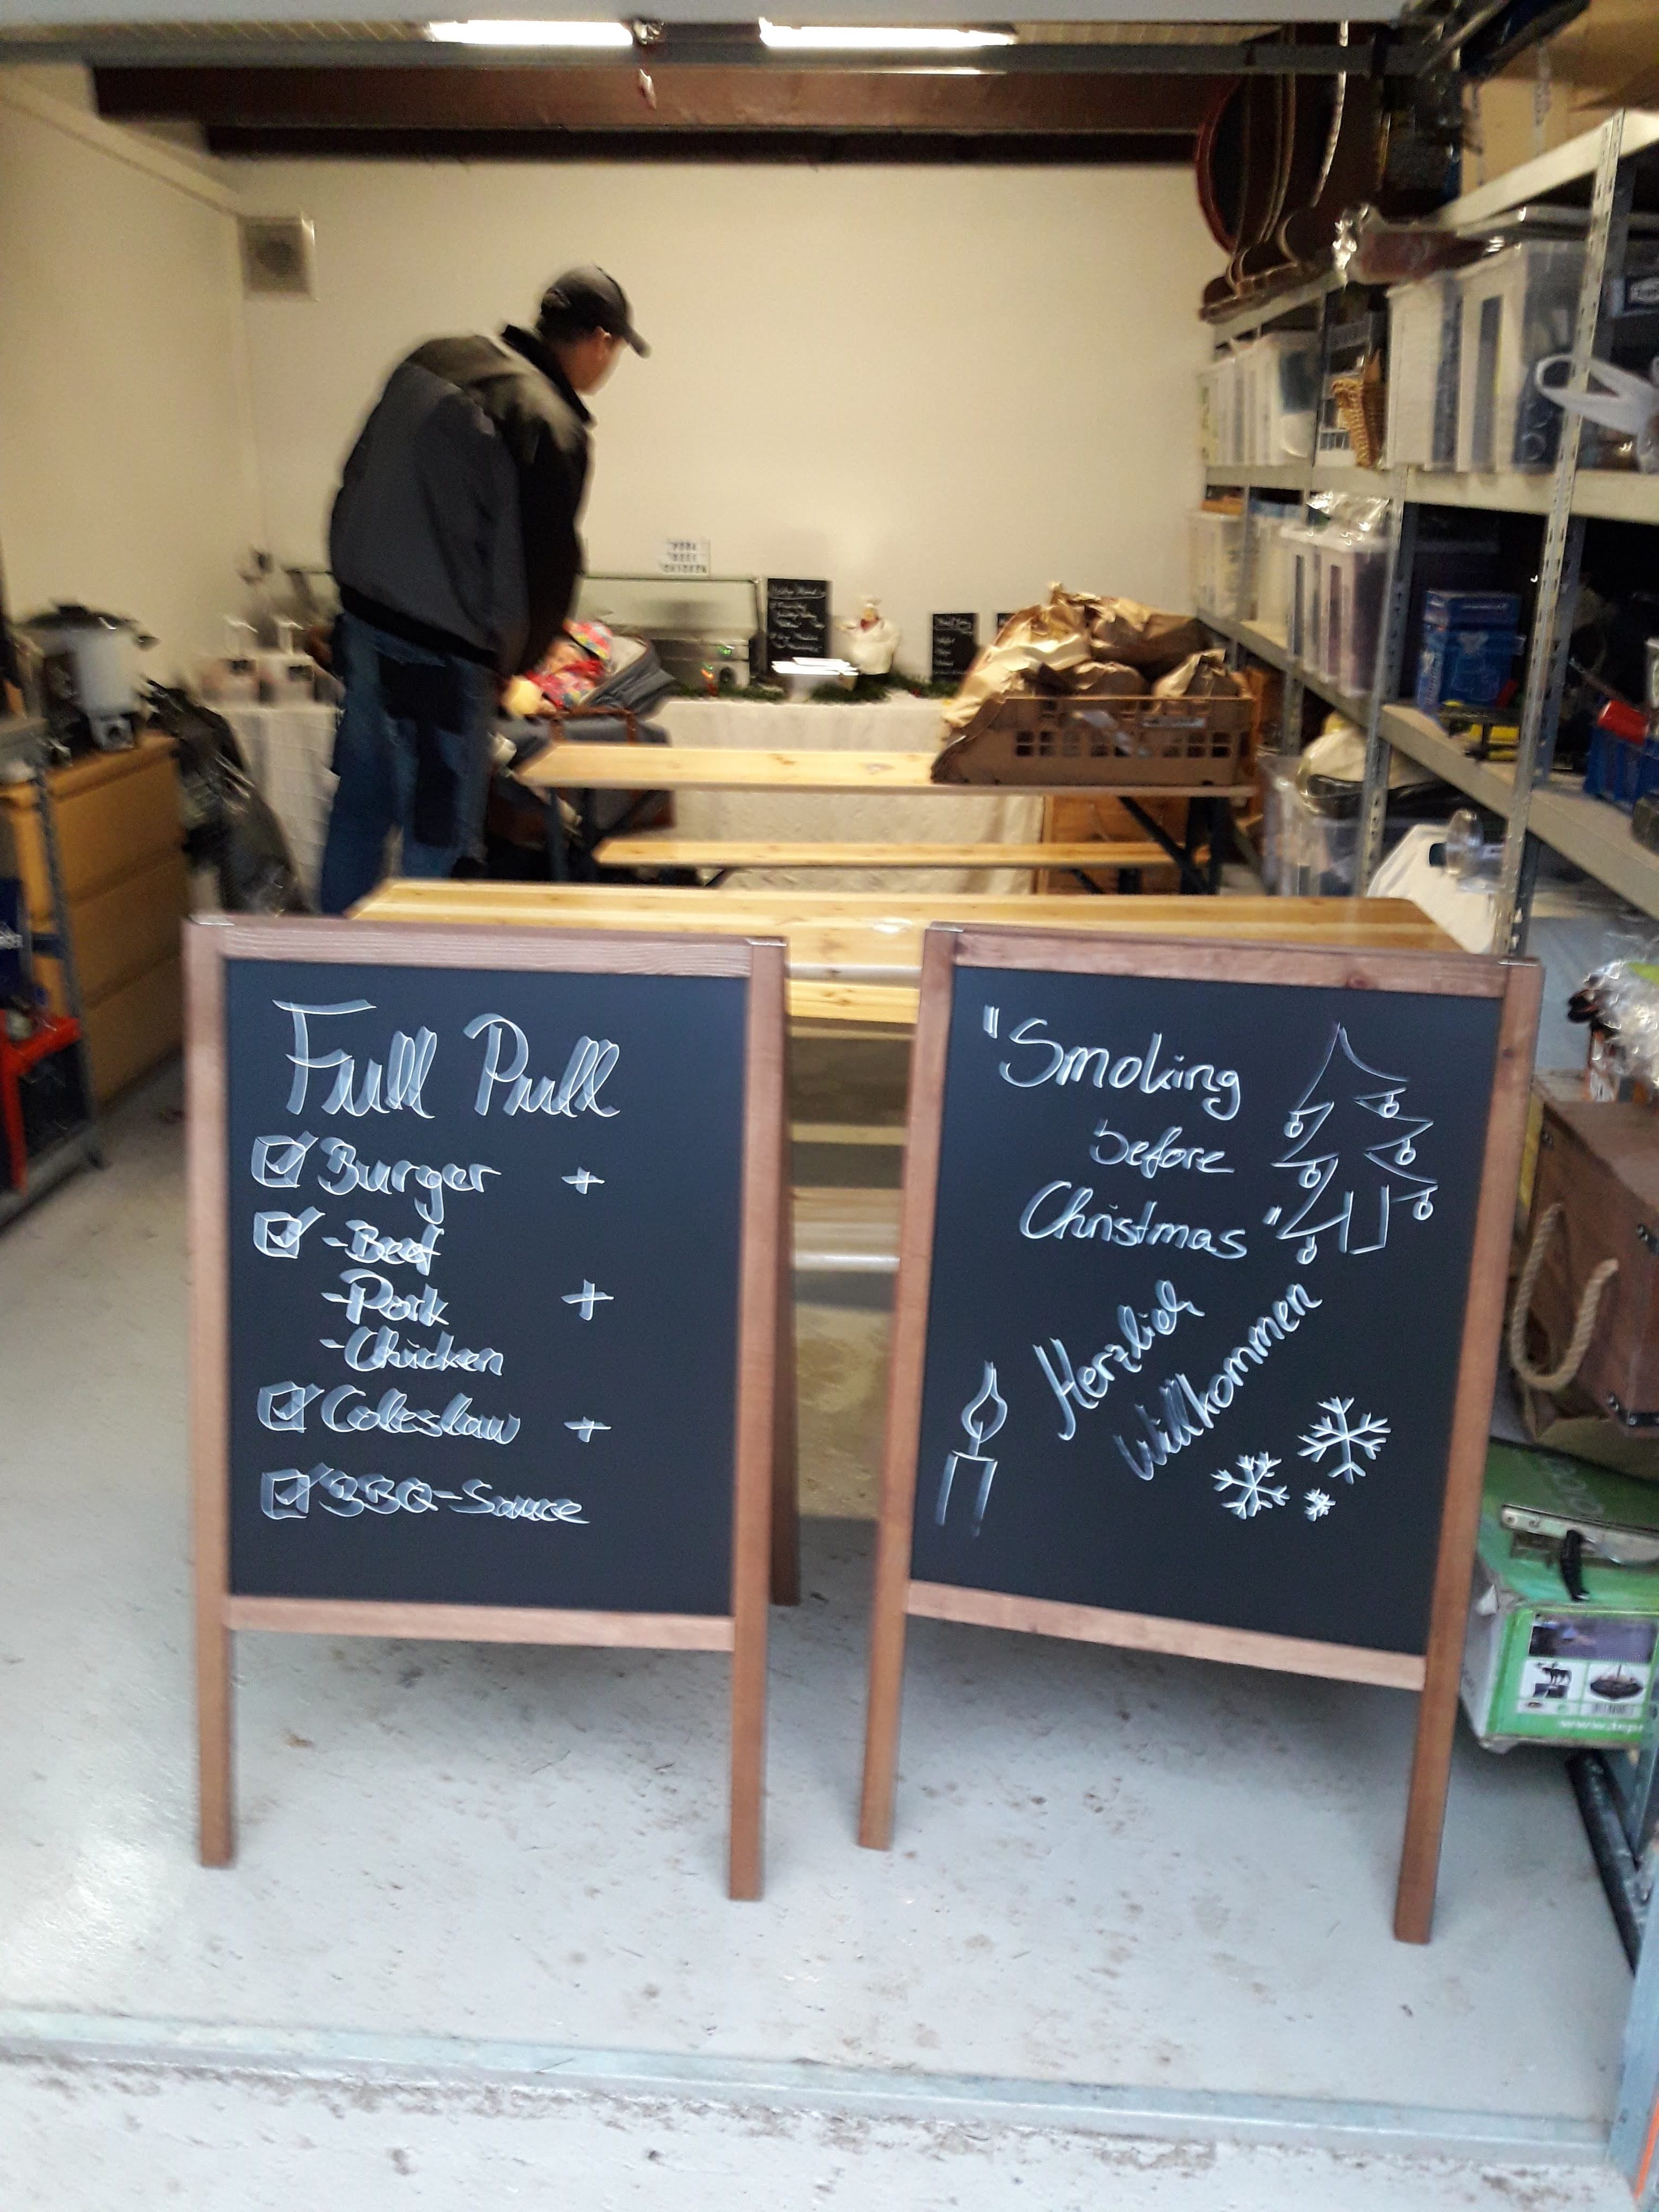 PORK
BEEF
CHICKEN
Full Pull
Burger +
- Beef
- Pork +
- Chicken
Coleslaw +
BBQ-Sauce
"Smoking
before
Christmas"
Herzlich
Willkommen